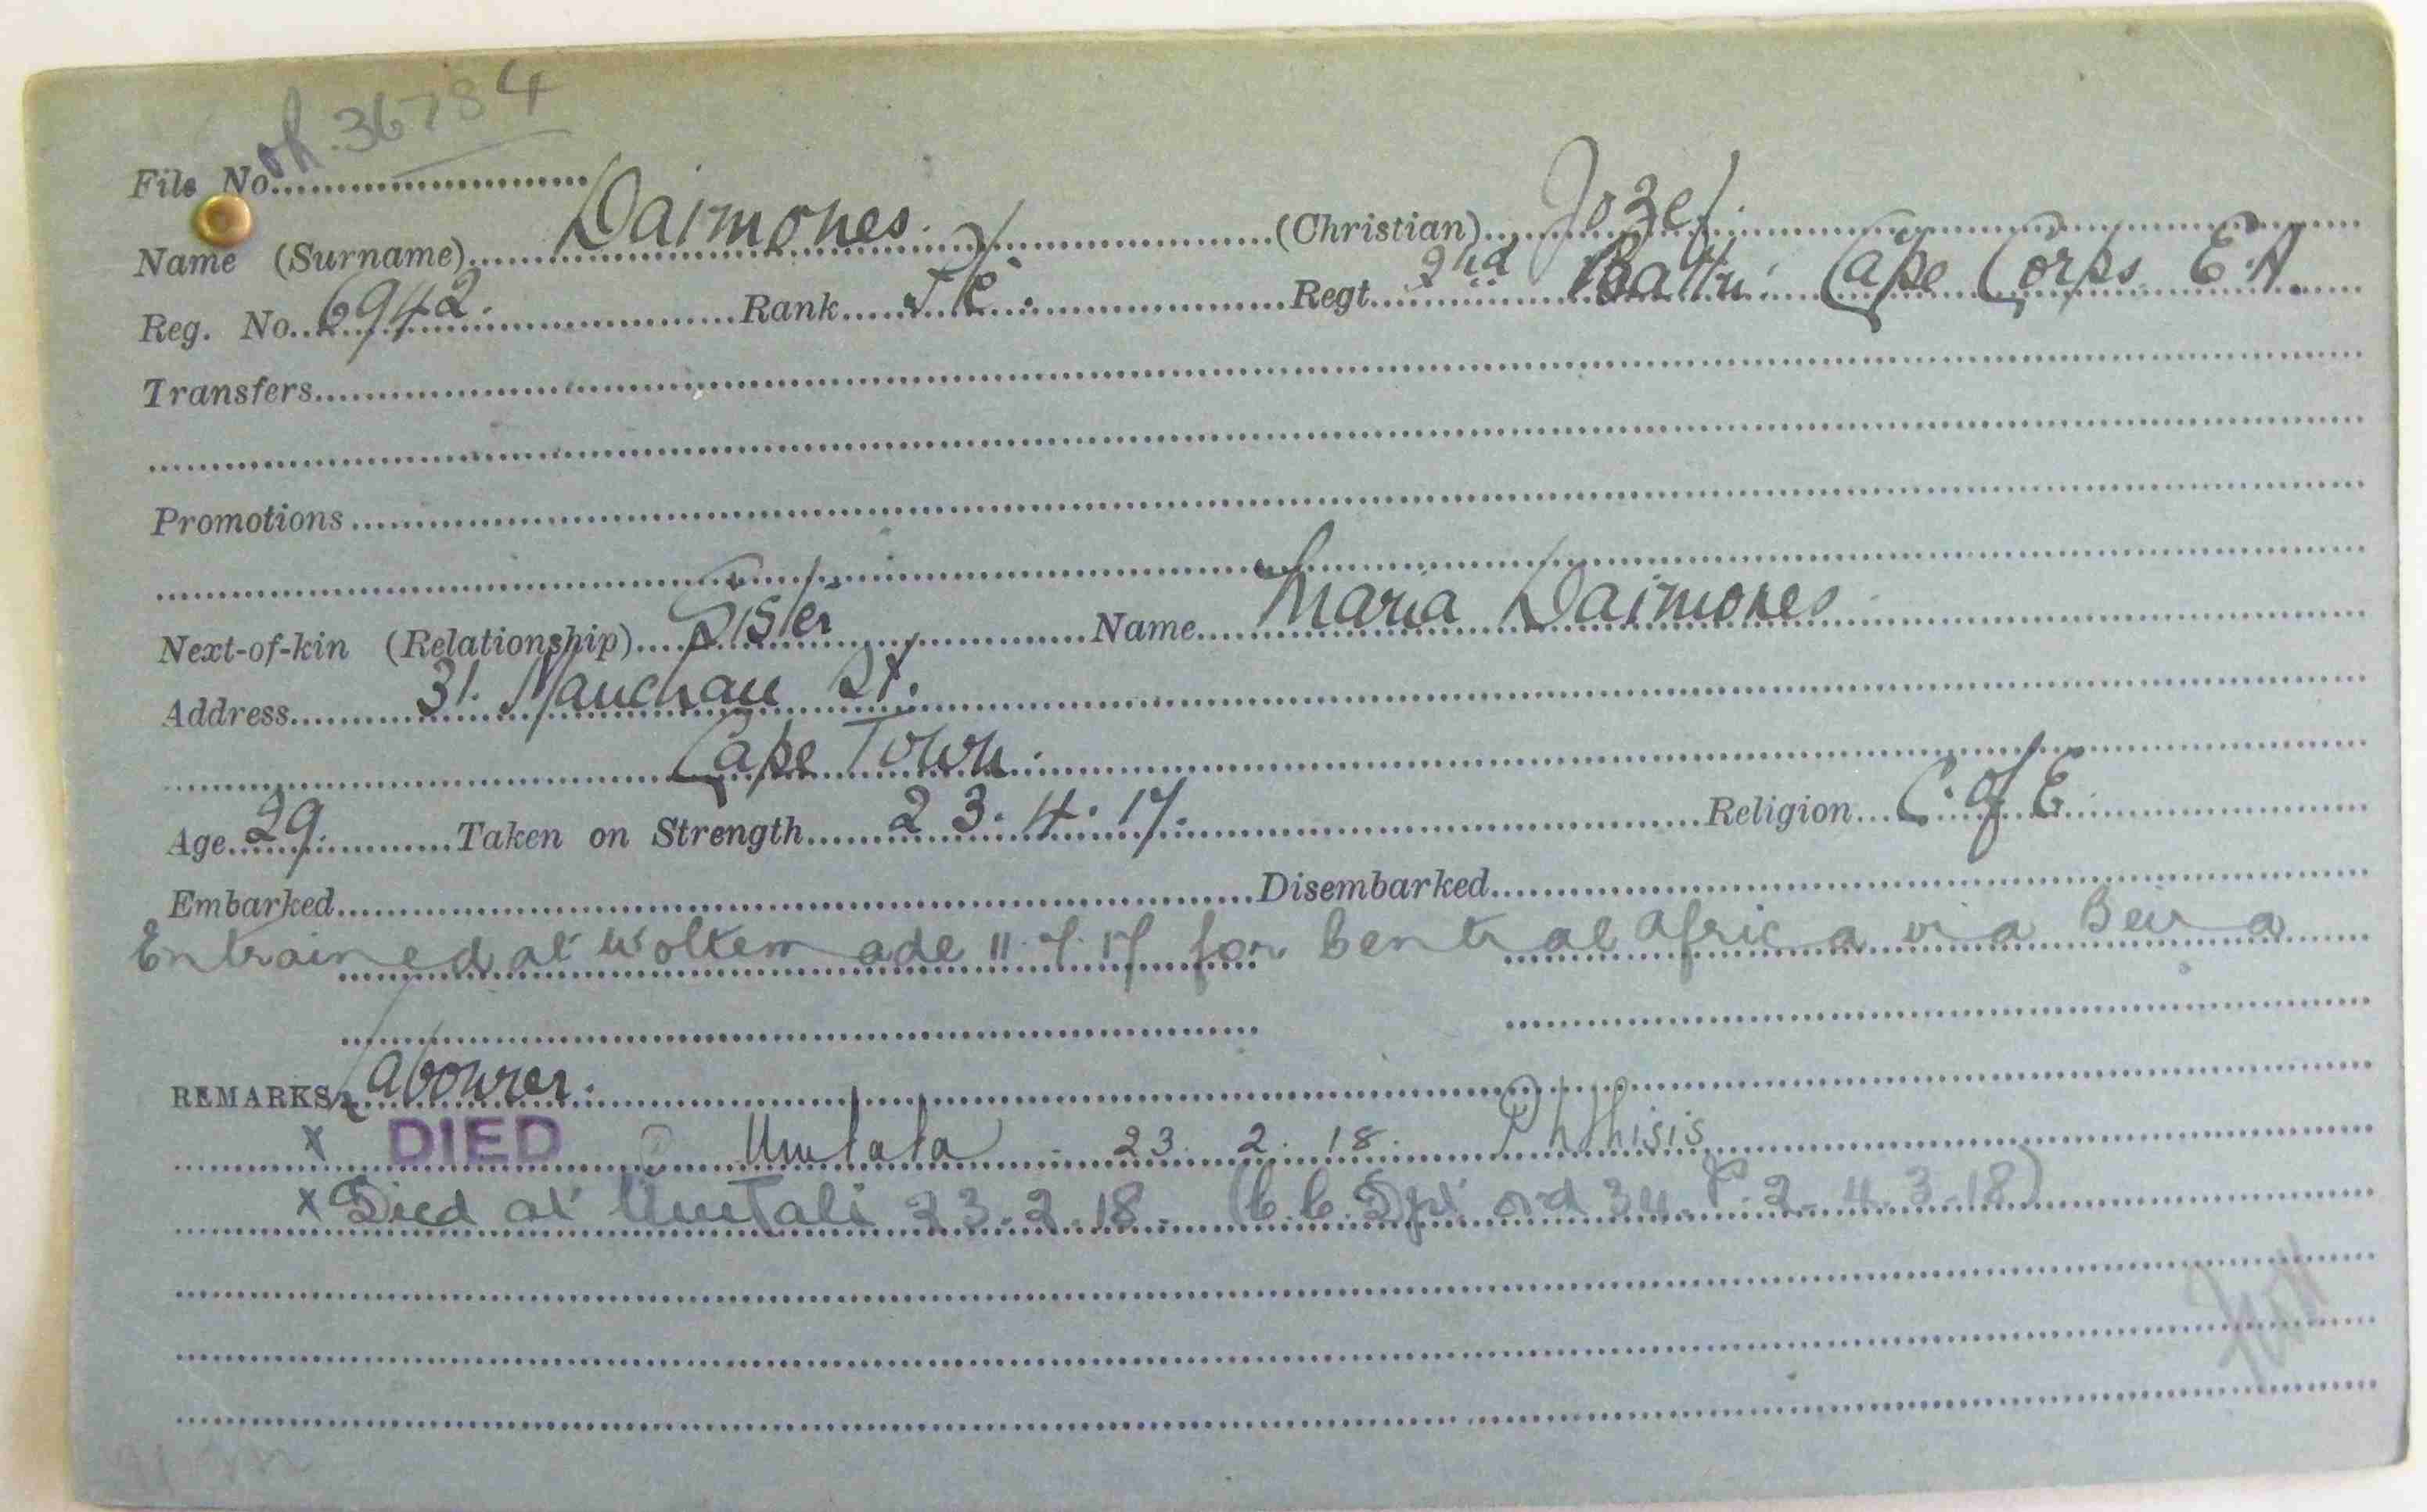 File No. oh. 36784
Name (Surname) Daimones. (Christian) Jozef.
Reg. No. 6942. Rank Pte. Regt. 2nd Battn. Cape Corps E.A.
Transfers
Promotions
Next-of-kin (Relationship) Sister Name Maria Daimones
Address 31. St.
Cape Town.
Age 29. Taken on Strength 23.4.17. Religion C. of E.
Embarked Disembarked
Entrained at Woltemade 11.7.17 for Central Africa via Beira
REMARKS Labourer.
x DIED @ Umtata - 23.2.18. Phthisis
x Died at Umtali 23.2.18. (C.C. Dpt ord 34. P.2. 4.3.18)